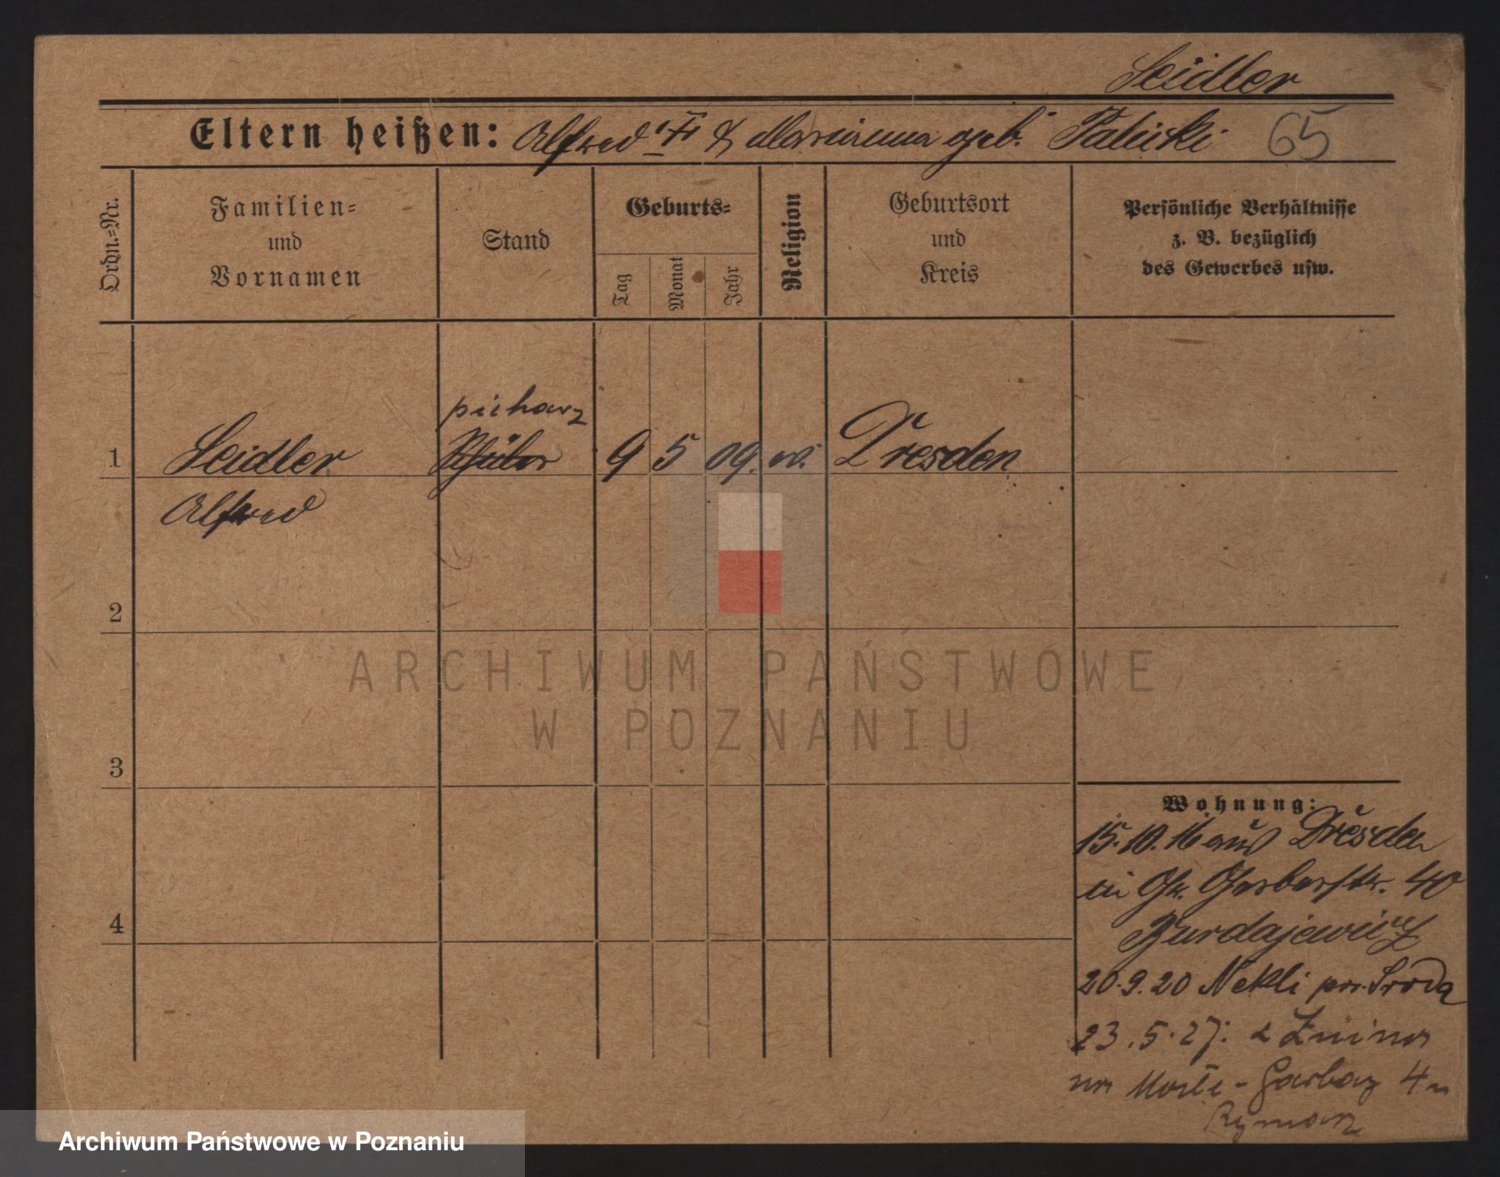 Seidler
Eltern heißen: Alfred & Marianna geb. Palicki 65
Ordn.=Nr.
Familien=
und
Vornamen
Stand
Geburts=
Tag
Monat
Jahr
Religion
Geburtsort
und
Kreis
Persönliche Verhältnisse
z. B. bezüglich
des Gewerbes usw.
piekarz
1 Seidler Schüler 9 5 09. ev. Dresden
Alfred
2
ARCHIWUM PAŃSTWOWE
W POZNANIU
3
Wohnung:
15.10.16 aus Dresden
Gr. Gerberstr. 40
Burdajewicz
20.9.20 Nekli pow. Środa
23.5.27: z Żnina
na Garbary 4
Rymarz
4
Archiwum Państwowe w Poznaniu